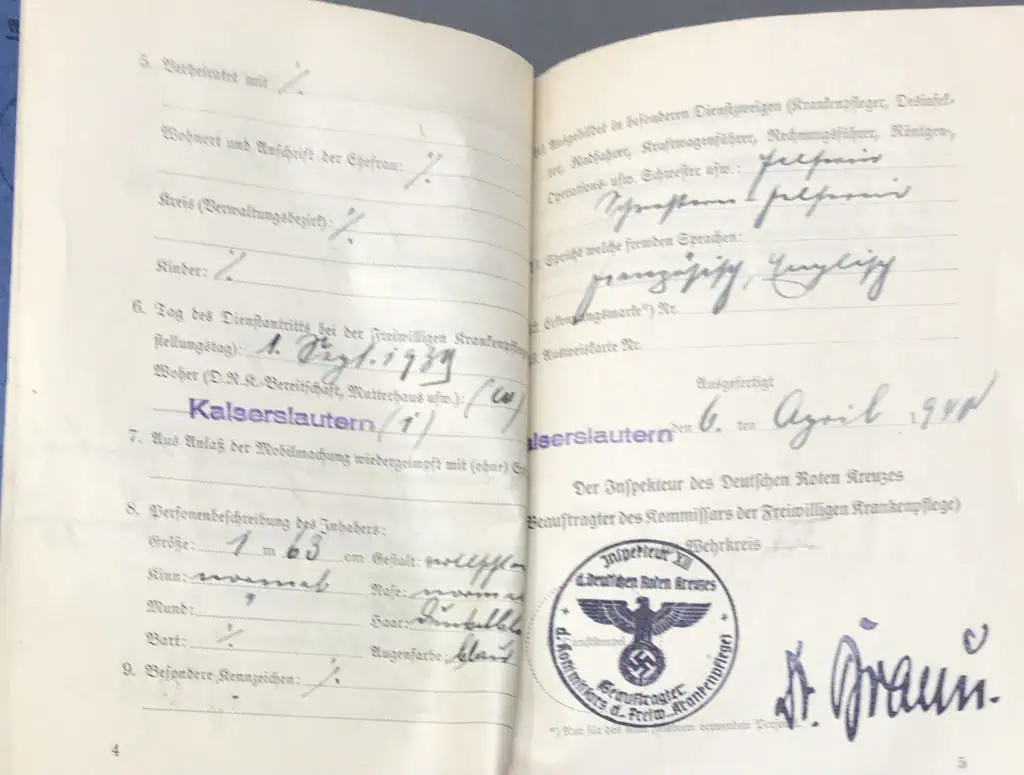 5. Verheiratet mit ∕.
Wohnort und Anschrift der Ehefrau: ∕.
Kreis (Verwaltungsbezirk): ∕.
Kinder: ∕.
6. Tag des Dienstantritts bei der Freiwilligen Krankenpfleg
stellungstag): 1. Sept. 1939
Woher (D.R.K.-Bereitschaft, Mutterhaus usw.): (w)
Kaiserslautern (1)
7. Aus Anlaß der Mobilmachung wiedergeimpft mit (ohne)
8. Personenbeschreibung des Inhabers:
Größe: 1 m 63 cm Gestalt:
Kinn: normal Nase: normal
Mund: " Haar: Dunkelbl
Bart: ∕. Augenfarbe: blau
9. Besondere Kennzeichen: ∕.
4
Ausgebildet in besonderen Dienstzweigen (Krankenpfleger, Desinfek-
tor, Radfahrer, Kraftwagenführer, Rechnungsführer, Röntgen-,
Operations- usw. Schwester usw.: Helferin
Schwestern-Helferin
Spricht welche fremden Sprachen:
Französisch, Englisch
12. Erkennungsmarke*) Nr.
13. Ausweiskarte Nr.
Ausgefertigt
aiserslautern den 6. ten April 194
Der Inspekteur des Deutschen Roten Kreuzes
Beauftragter des Kommissars der Freiwilligen Krankenpflege)
Wehrkreis
Inspekteur XII
d. Deutschen Roten Kreuzes
Beauftragter
d. Kommissars d. Freiw. Krankenpflege
Dr. Braun.
*) Nur für das
5